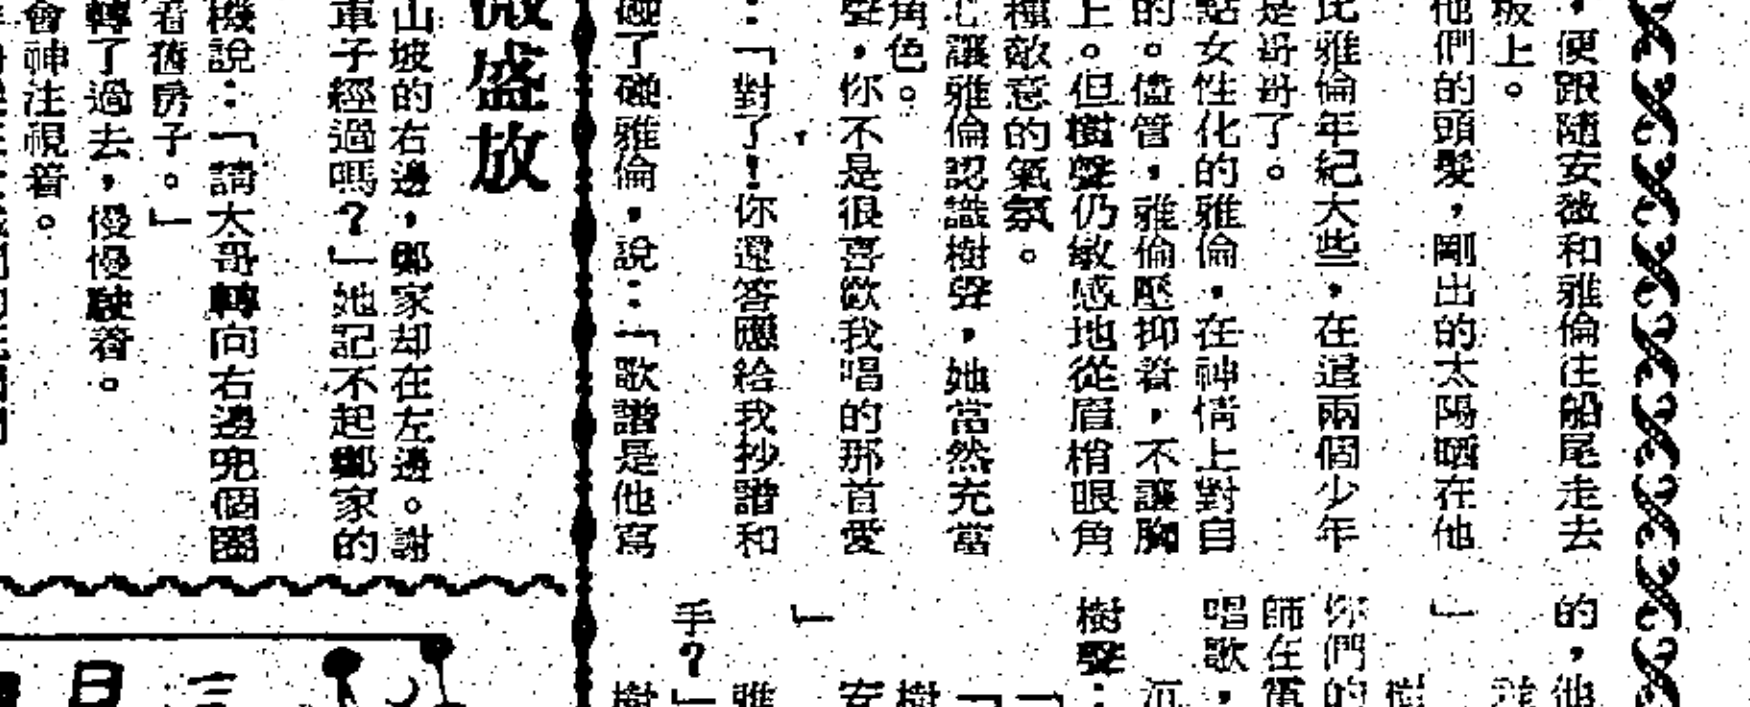 ，便跟隨安薇和雅倫往船尾走去
板上。
他們的頭髮，剛出的太陽晒在他
比雅倫年紀大些，在這兩個少年
是哥哥了。
點女性化的雅倫，在神情上對自
的。儘管，雅倫壓抑着，不讓胸
上。但樹聲仍敏感地從眉梢眼角
種敵意的氣氛。
心讓雅倫認識樹聲，她當然充當
角色。
聲，你不是很喜歡我唱的那首愛
：「對了！你還答應給我抄譜和
碰了碰雅倫，說：「歌譜是他寫
的，他
」
你們的
師在
唱歌，
樹聲：
」
手？」
薇盛放
山坡的右邊，鄉家却在左邊。謝
車子經過嗎？」她記不起鄉家的
機說：「請太哥轉向右邊兜個圈
着舊房子。」
轉了過去，慢慢駛着。
會神注視着。
三日